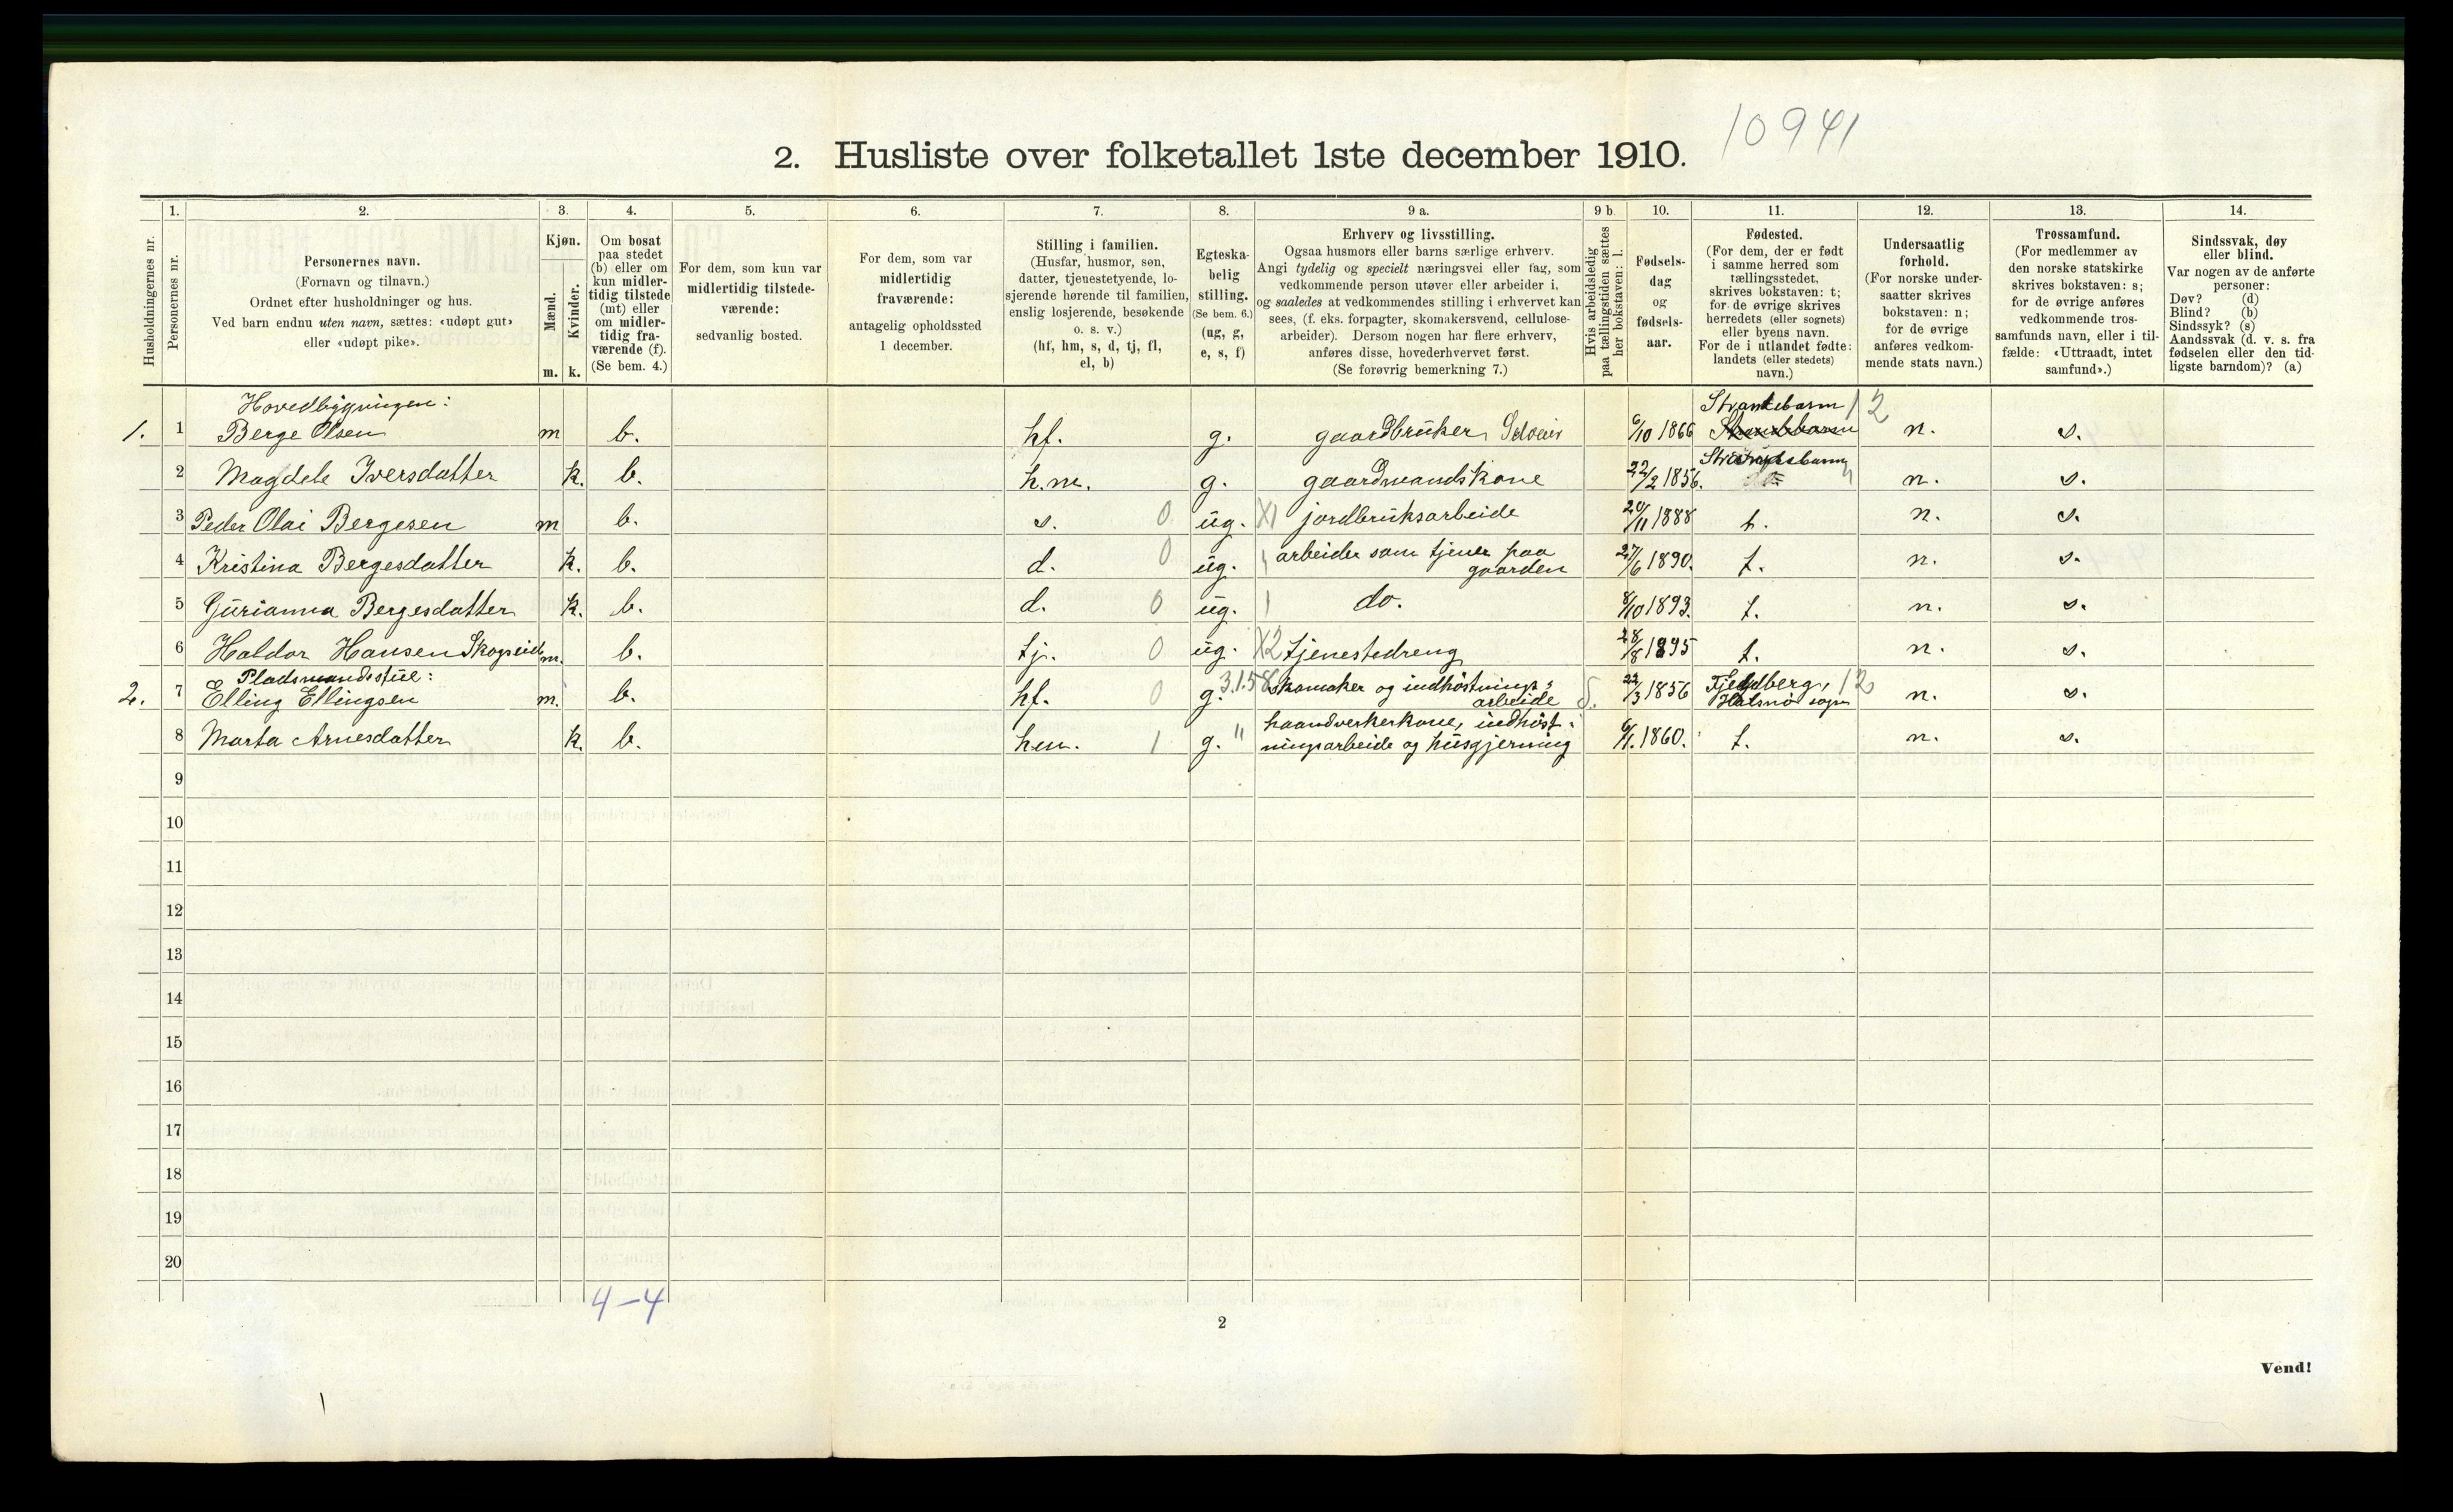 10941
2. Husliste over folketallet 1ste december 1910.
Husholdningernes nr.
1.
Personernes nr.
2.
Personernes navn.
(Fornavn og tilnavn.)
Ordnet efter husholdninger og hus.
Ved barn endnu uten navn, sættes: «udøpt gut»
eller «udøpt pike».
3.
Kjøn.
Mænd.
Kvinder.
m. k.
4.
Om bosat
paa stedet
(b) eller om
kun midler-
tidig tilstede
(mt) eller
om midler-
tidig fra-
værende (f).
(Se bem. 4.)
5.
For dem, som kun var
midlertidig tilstede-
værende:
sedvanlig bosted.
6.
For dem, som var
midlertidig
fraværende:
antagelig opholdssted
1 december.
7.
Stilling i familien.
(Husfar, husmor, søn,
datter, tjenestetyende, lo-
sjerende hørende til familien,
enslig losjerende, besøkende
o. s. v.)
(hf, hm, s, d, tj, fl,
el, b)
8.
Egteska-
belig
stilling.
(Se bem. 6.)
(ug, g,
e, s, f)
9 a.
Erhverv og livsstilling.
Ogsaa husmors eller barns særlige erhverv.
Angi tydelig og specielt næringsvei eller fag, som
vedkommende person utøver eller arbeider i,
og saaledes at vedkommendes stilling i erhvervet kan
sees, (f. eks. forpagter, skomakersvend, cellulose-
arbeider). Dersom nogen har flere erhverv,
anføres disse, hovederhvervet først.
(Se forøvrig bemerkning 7.)
9 b
Hvis arbeidsledig
paa tællingstiden sættes
her bokstaven: l.
10.
Fødsels-
dag
og
fødsels-
aar.
11.
Fødested.
(For dem, der er født
i samme herred som
tællingsstedet,
skrives bokstaven: t;
for de øvrige skrives
herredets (eller sognets)
eller byens navn.
For de i utlandet fødte:
landets (eller stedets)
navn.)
12.
Undersaatlig
forhold.
(For norske under-
saatter skrives
bokstaven: n;
for de øvrige
anføres vedkom-
mende stats navn.)
13.
Trossamfund.
(For medlemmer av
den norske statskirke
skrives bokstaven: s;
for de øvrige anføres
vedkommende tros-
samfunds navn, eller i til-
fælde: «Uttraadt, intet
samfund».)
14.
Sindssvak, døv
eller blind.
Var nogen av de anførte
personer:
Døv? (d)
Blind? (b)
Sindssyk? (s)
Aandssvak (d. v. s. fra
fødselen eller den tid-
ligste barndom)? (a)
Hovedbygningen:
1. 1 Berge Olsen m b. hf. g. gaardbruker Selveier 6/10 1866 Strandebarm 12 n. s.
2 Magdele Iversdatter k. b. h.m. g. gaardmandskone 22/2 1856. n. s.
3 Peder Olai Bergesen m b. s. 0 ug. X1 jordbruksarbeide 20/11 1888 t. n. s.
4 Kristina Bergesdatter k. b. d. 0 ug. 1 arbeider som tjener paa
gaarden 27/6 1890. t. n. s.
5 Gurianna Bergesdatter k. b. d. 0 ug. 1 do. 8/10 1893. t. n. s.
6 Haldor Hansen Skogseid m. b. tj. 0 ug. X2 tjenestedreng 28/8 1895 t. n. s.
Pladsmandsstue:
2. 7 Elling Ellingsen m. b. hf. 0 g. 3.1.58 skomaker og indhøstnings-
arbeide 22/3 1856 Fjeldberg, 12
Halsnö sogn n. s.
8 Marta Arnesdatter k. b. hm. 1 g. " haandverkerkone, indhøst-
ningsarbeide og husgjerning 6/1. 1860. t. n. s.
9
10
11
12
13
14
15
16
17
18
19
20
4-4
2
Vend!